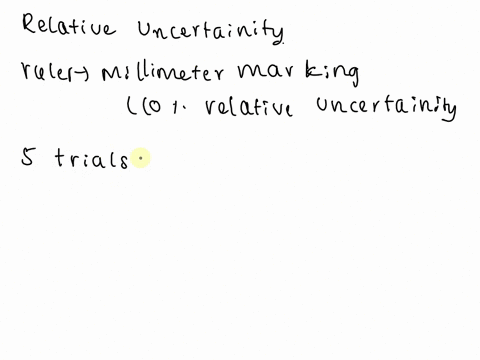 Relative Uncertainity
ruler→ millimeter marking
(10%. relative uncertainity
5 trials